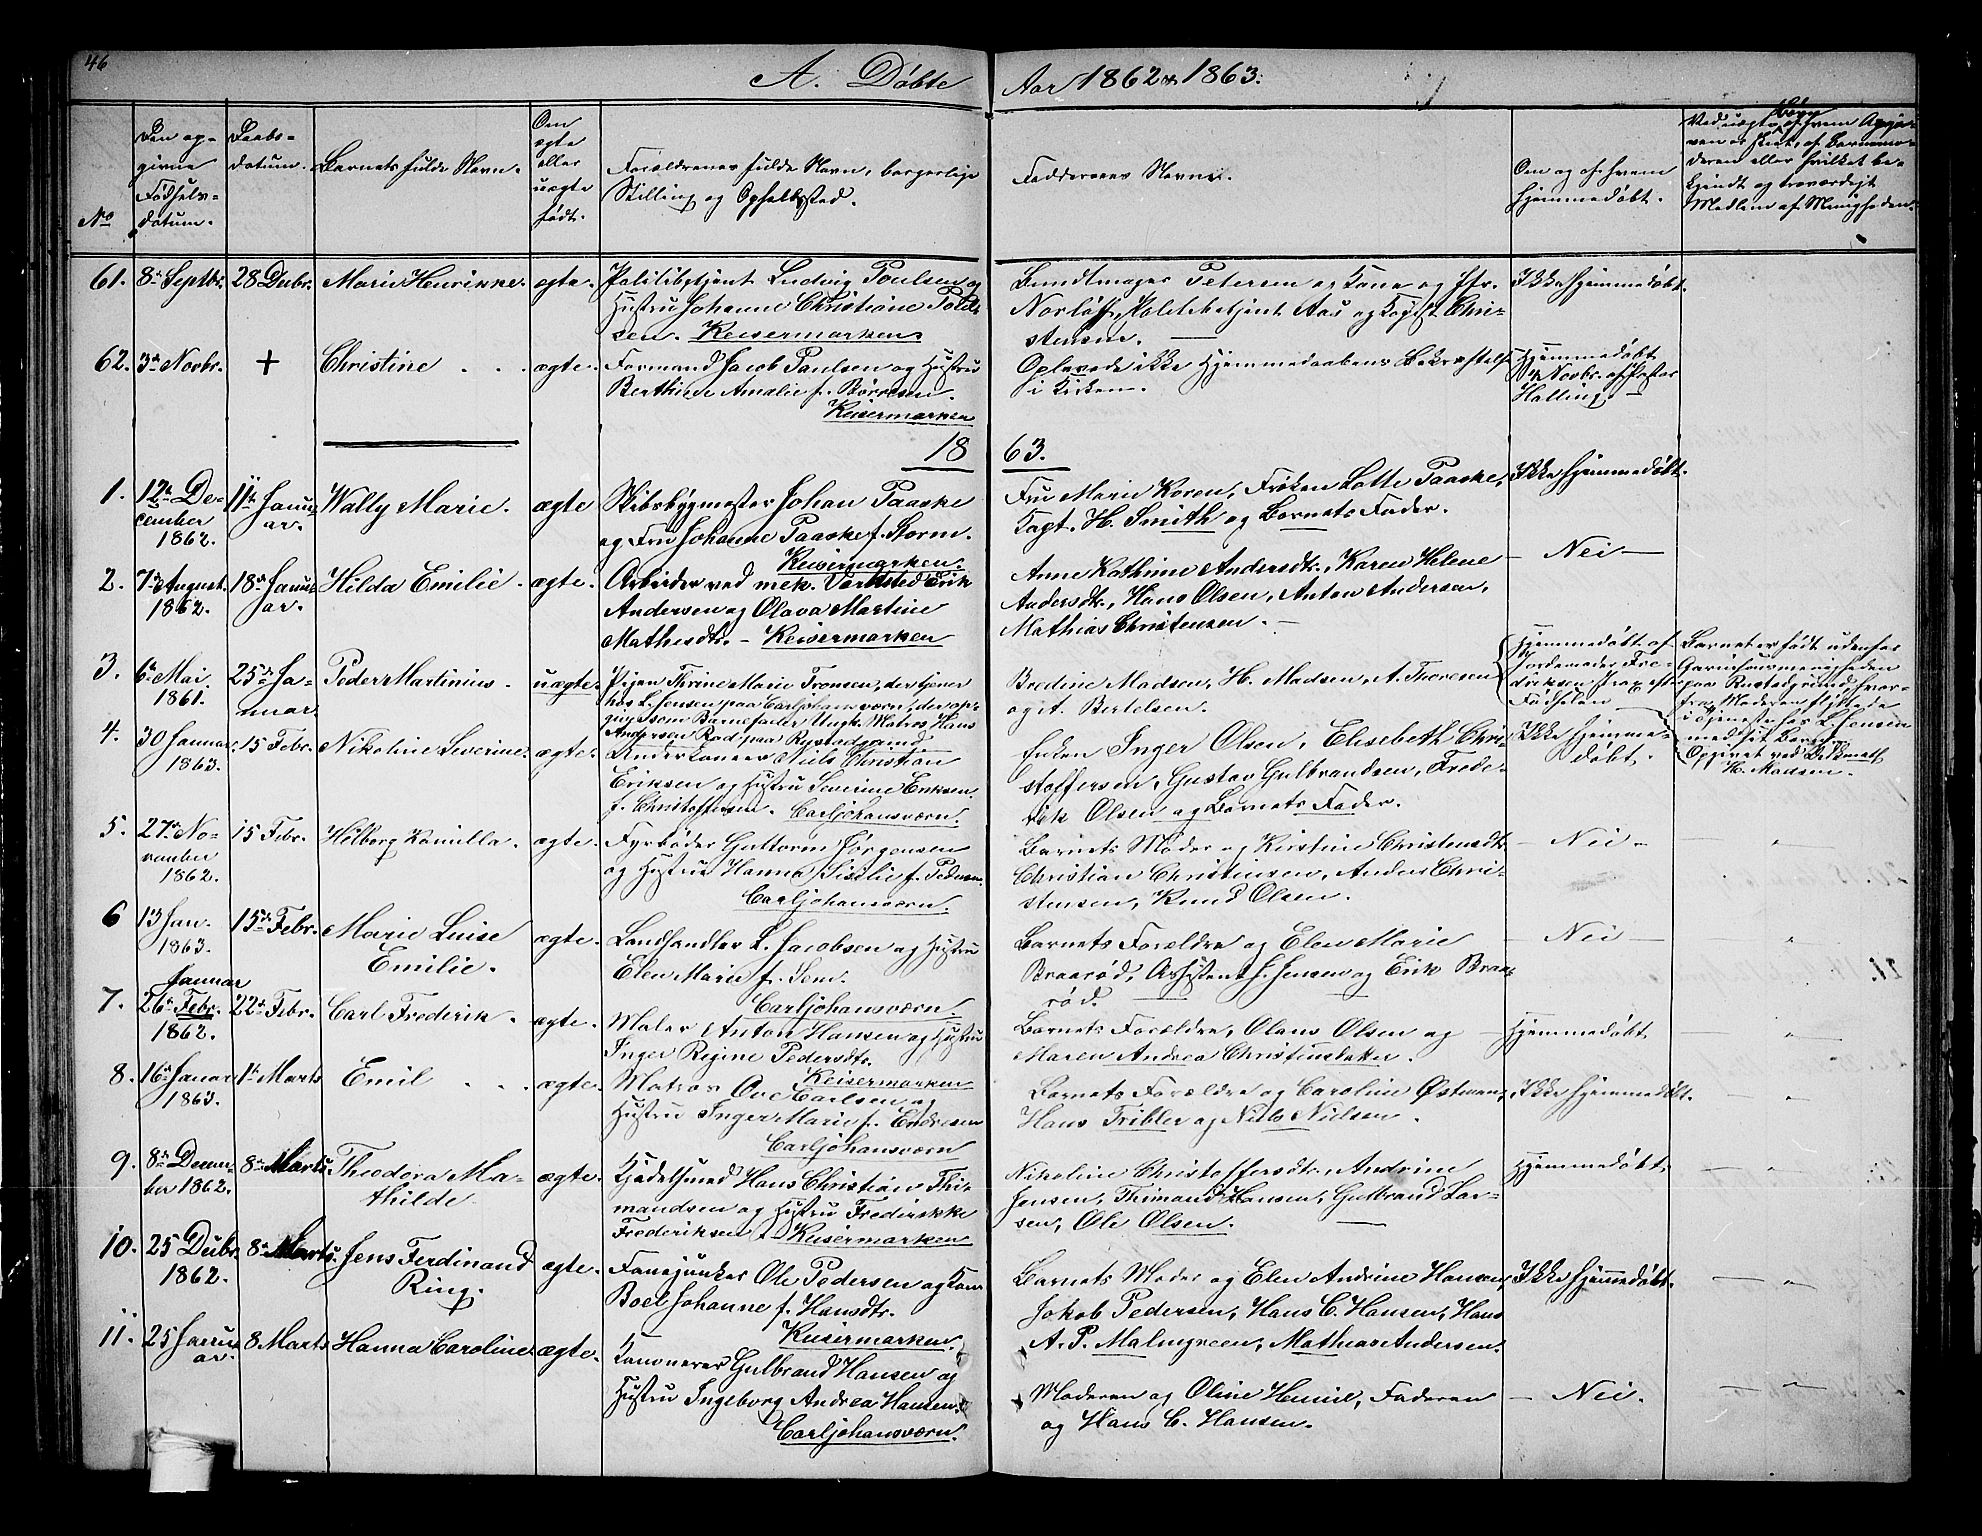 46
A. Døbte
Aar 1862 & 1863.
No
Den op-
givne
Fødsels-
datum.
Daabs-
datum.
Barnets fulde Navn.
Om
ægte
eller
uægte
født.
Forældrenes fulde Navn, borgerlige
Stilling og Opholdssted.
Faddernes Navne.
Om og af hvem
hjemmedøbt.
Ved uægte Børn af hvem Opgi-
ven er skeet, af Barnemo-
deren eller hvilket be-
kjendt og troværdigt
Medlem af Menigheden.
61. 8de Septbr. 28 Decbr. Marie Henrikke. ægte. Politibetjent Ludvig Poulsen og
Hustru Johanne Christiane Poul-
sen. Keisermarken.
Bundtmager Petersen og Kone og Hr.
Norløff, Politibetjent Aas og Kogist. Chri-
stensen. —
Ikke hjemmedøbt.
62. 3de Novbr. + Christine . . . ægte. Formand Jacob Paulsen og Hustru
Berthine Amalie f. Børresen.
Keisermarken
Oplevede ikke Hjemmedaabens Bekræftelse
i Kirken. —
Hjemmedøbt
Novbr. af Pastor
Halling. —
1863.
1. 12te De-
cember
1862.
11te Janu-
ar.
Wally Marie. ægte Skibsbygmester Johan Paaske
og Fru Johanne Paaske f. Storm.
Keisermarken.
Fru Marie Koren, Frøken Lotte Paaske,
Capt. H. Smith og Barnets Fader.
Ikke hjemmedøbt.
2. 7de August
1862.
18de Janu-
ar.
Hilda Emilie. ægte. Arbeider ved mek. Værksted Erik
Andersen og Olava Martine
Mathisdtr. – Keisermarken
Anne Kathrine Andersdtr., Karen Helene
Andersdtr., Hans Olsen, Anton Andersen,
Mathias Christensen. —
— Nei —
3. 6te Mai
1861.
25de Ja-
nuar.
Peder Martinius. uægte. Pigen Thrine Marie Fronsen, der tjener
hos L. Jensen paa Carljohansværn; der op-
gives som Barnefader Ungk. Matros Hans
Andersen Rød paa Rystadgrund
Bredine Madsen, H. Madsen, A. Thoresen
og t. Bertelsen.
Hjemmedøbt af
Jordemoder Fre-
driksen strax efter
Fødselen
Barnet er født udenfor
Garnisonsmenigheden
paa Rustadgrund, hvor-
fra Moderen flyttede
i Tjeneste hos L. Jensen
med sit Barn.
Opgivet ved
H. Madsen.
4. 30 Januar
1863.
15 Febr. Nikoline Severine. ægte. Underkanoner Niels Christian
Eriksen og Hustru Severine Eriksen
f. Christoffersen. Carljohansværn.
Enken Inger Olsen, Elisebeth Chri-
stoffersen, Gustav Gulbrandsen, Frede-
rik Olsen og Barnets Fader.
Ikke hjemme-
døbt.
5. 27de No-
vember
1862.
15 Febr. Hilborg Kamilla. ægte. Fyrbøder Guttorm Jørgensen
og Hustru Hanna Sisilie f. Pedersen.
Carljohansværn.
Barnets Moder og Kirstine Christensdtr.
Christian Christensen, Anders Chri-
stensen, Knud Olsen.
— Nei —
6 13 Jan.
1863.
15de Febr. Marie Luise
Emilie.
ægte. Landhandler L. Jacobsen og Hustru
Elen Marie f. Sem.
Carljohansværn.
Barnets Forældre og Elen Marie
Braarød, Assistent J. Jensen og Erik Braa-
rød.
— Nei —
7. Januar
26de Febr.
1862.
22de Febr. Carl Frederik. ægte. Maler Anton Hansen og Hustru
Inger Regine Pedersdtr.
Keisermarken
Barnets Forældre, Olaus Olsen og
Maren Andrea
— Hjemmedøbt
8. 16de Januar
1863.
1te Marts Emil . . . ægte. Matros Ove Carlsen og
Hustru Inger Marie f. Endresen
Carljohansværn
Barnets Forældre og Caroline Østmann,
Hans Tribler og Niels Nielsen.
Ikke hjemmedøbt.
9. 8de Decem-
ber 1862.
8de Marts. Theodora Ma-
thilde.
ægte. Kjedelsmed Hans Christian Thi-
mandsen og Hustru Frederikke
Frederiksen – Keisermarken
Nikoline Christoffersdtr., Andrine
Jensen, Thimand Hansen, Gulbrand Lar-
sen, Ole Olsen. —
Hjemmedøbt.
10. 25 Decbr.
1862.
8de Marts. Jens Ferdinand
Ring.
ægte. Fanejunker Ole Pedersen og Kone
Boel Johanne f. Hansdtr.
Keisermarken.
Barnets Moder og Elen Andrine Hansen,
Jokob Pedersen, Hans C. Hansen, Hans
A. P. Malmgreen, Mathias Andersen.
Ikke hjemmedøbt.
11. 25 Janu-
ar.
8 Marts Hanna Caroline. ægte. Kanoneer Gulbrand Hansen og
Hustru Ingeborg Andrea Hansen.
Carljohansværn.
Moderen og Oline Faderen
og Hans C. Hansen.
— Nei.